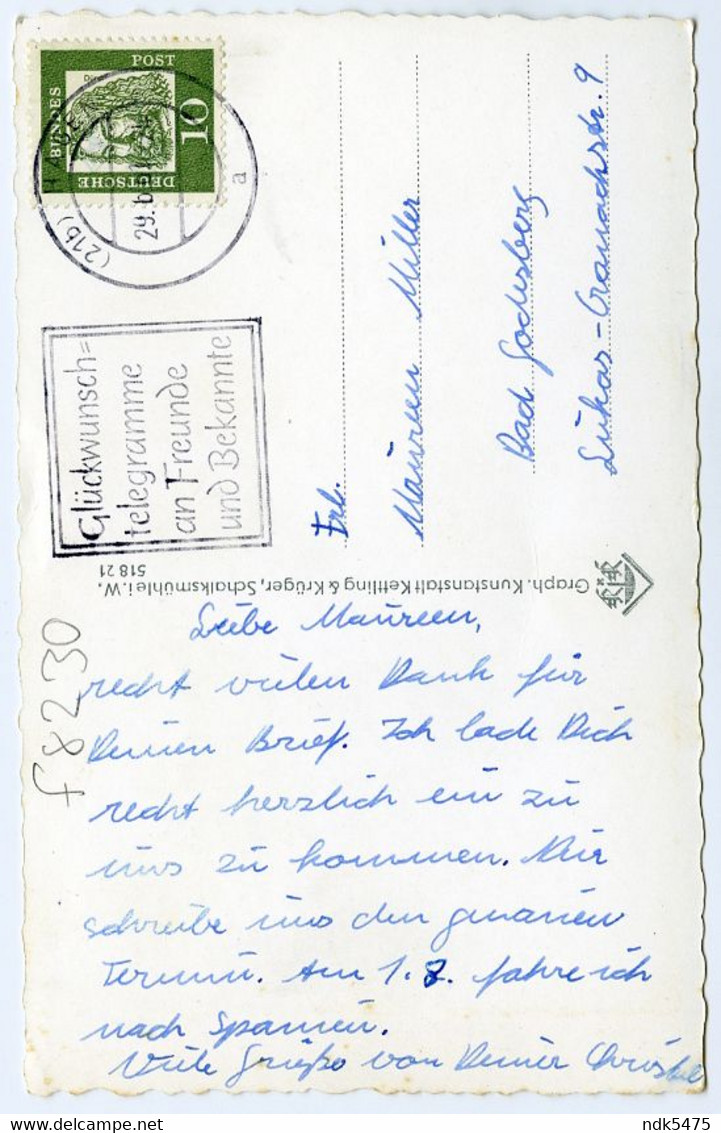 DEUTSCHE
BUNDESPOST
10
(21b) HAGEN
29.6.
a
Glückwunsch=
telegramme
an Freunde
und Bekannte
Frl.
Maureen Miller
Bad Godesberg
Lukas-Cranachstr. 9
Graph. Kunstanstalt Kettling & Krüger, Schalksmühle i. W.
518 21
f8230
Liebe Maureen,
recht vielen Dank für
Deinen Brief. Ich lade Dich
recht herzlich ein zu
uns zu kommen. Nur
schreibe uns den genauen
Termin. Am 1.8. fahre ich
nach Spanien.
Viele Grüße von Deiner Christel
www.delcampe.net
ndk5475